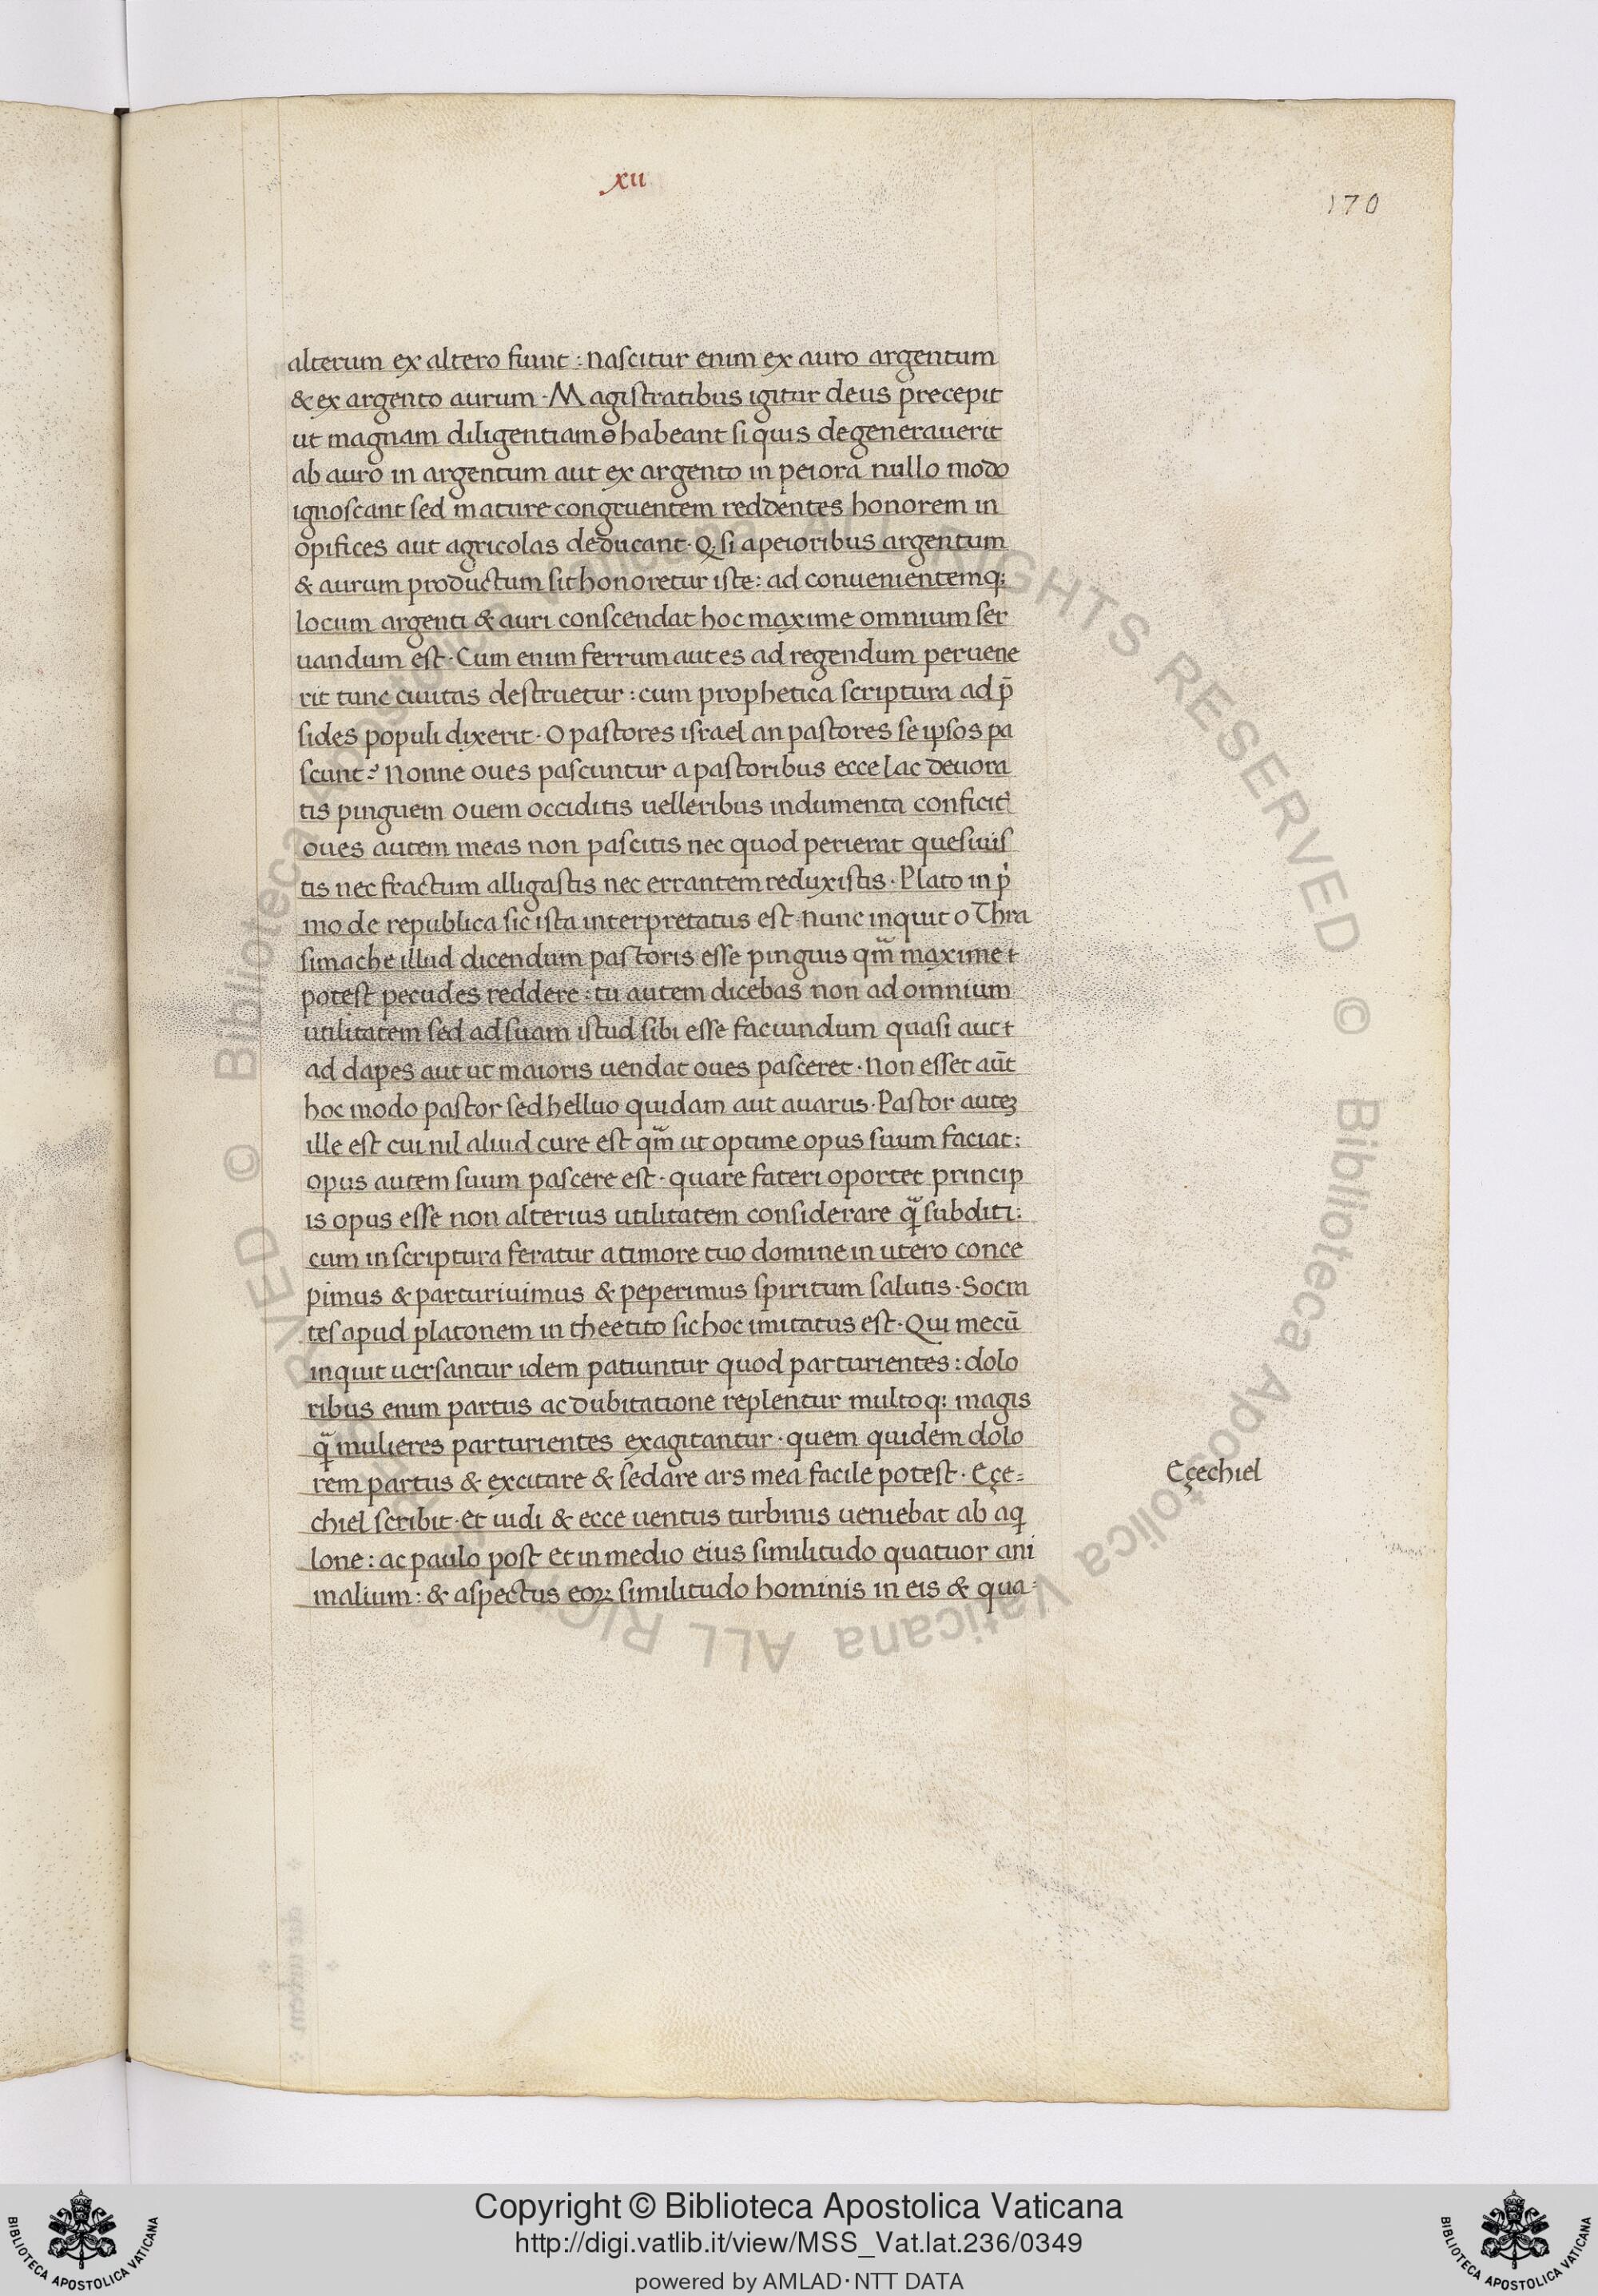 xii
170
alterum ex altero fiunt : nascitur enim ex auro argentum
& ex argento aurum · Magistratibus igitur deus precepit
ut magnam diligentiam habeant si quis degenerauerit
ab auro in argentum aut ex argento in peiora nullo modo
ignoscant sed mature congruentem reddentes honorem in
opifices aut agricolas deducant · Q, si a peioribus argentum
& aurum productum sit honoretur iste : ad conuenientemq;
locum argenti & auri conscendat hoc maxime omnium ser
uandum est · Cum enim ferrum aut es ad regendum peruene
rit tunc ciuitas destruetur : cum prophetica scriptura ad p̄
sides populi dixerit · O pastores israel an pastores se ipsos pa
scunt ? Nonne oues pascuntur a pastoribus ecce lac deuora
tis pinguem ouem occiditis uelleribus indumenta conficit᷑
oues autem meas non pascitis nec quod perierat quesiuis
tis nec fractum alligastis nec errantem reduxistis · Plato in p̍
mo de republica sic ista interpretatus est nunc inquit o Thra
simache illud dicendum pastoris esse pinguis qm̃ maxime t
potest pecudes reddere : tu autem dicebas non ad omnium
utilitatem sed ad suam istud sibi esse faciundum quasi aut t
ad dapes aut ut maioris uendat oues pasceret · Non esset aūt
hoc modo pastor sed helluo quidam aut auarus · Pastor auteʒ
ille est cui nil aliud cure est qm̃ ut optime opus suum faciat :
opus autem suum pascere est · quare fateri oportet princip
is opus esse non alterius utilitatem considerare q̃ subditi :
cum in scriptura feratur a timore tuo domine in utero conce
pimus & parturiuimus & peperimus spiritum salutis · Socra
tes apud platonem in theetito sic hoc imitatus est · Qui mecū
inquit uersantur idem patiuntur quod parturientes : dolo
ribus enim partus ac dubitatione replentur multoq; magis
q̃ mulieres parturientes exagitantur · quem quidem dolo
rem partus & excitare & sedare ars mea facile potest · Eçe=
chiel scribit · et uidi & ecce uentus turbinis ueniebat ab aq
lone : ac paulo post et in medio eius similitudo quatuor ani
malium : & aspectus eoꝝ similitudo hominis in eis & qua=
Eçechiel
Copyright © Biblioteca Apostolica Vaticana
http://digi.vatlib.it/view/MSS_Vat.lat.236/0349
powered by AMLAD·NTT DATA
BIBLIOTECA APOSTOLICA VATICANA
BIBLIOTECA APOSTOLICA VATICANA